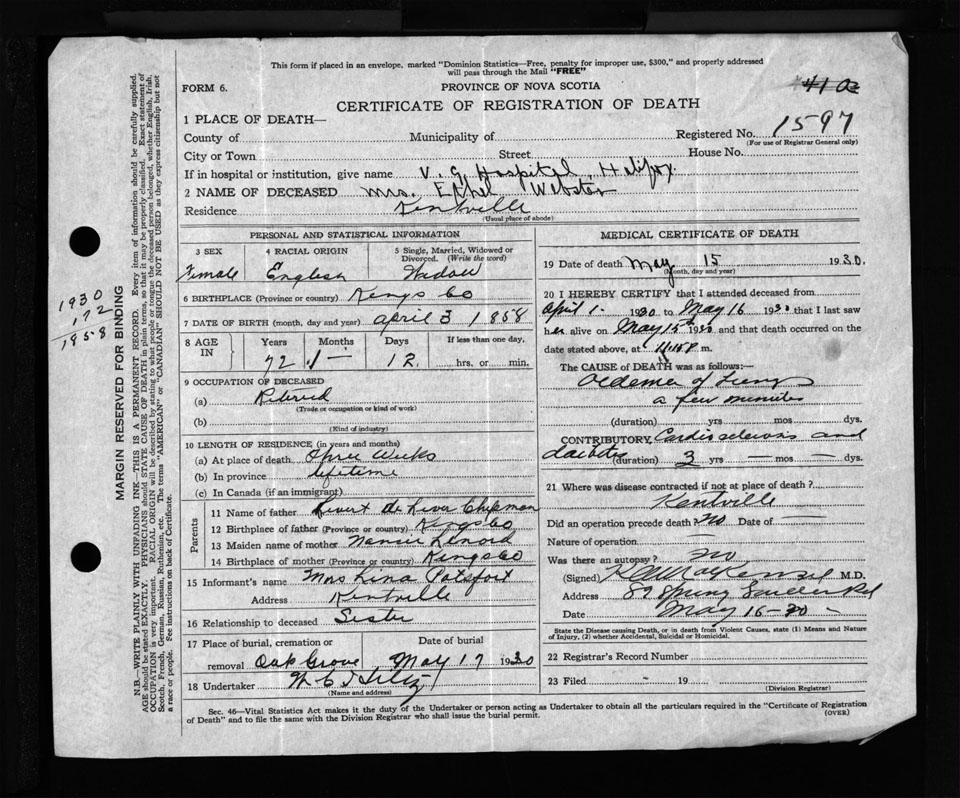 This form if placed in an envelope, marked "Dominion Statistics—Free, penalty for improper use, $300," and properly addressed
will pass through the Mail "FREE"
FORM 6. PROVINCE OF NOVA SCOTIA
CERTIFICATE OF REGISTRATION OF DEATH
1 PLACE OF DEATH—
Registered No. 1597
County of Municipality of (For use of Registrar General only)
City or Town Street House No.
If in hospital or institution, give name V. G. Hospital, Halifax.
2 NAME OF DECEASED Mrs. Ethel Webster
Residence Kentville
(Usual place of abode)
PERSONAL AND STATISTICAL INFORMATION
3 SEX 4 RACIAL ORIGIN 5 Single, Married, Widowed or
Divorced. (Write the word)
Female English Widow
6 BIRTHPLACE (Province or country) Kings Co
7 DATE OF BIRTH (month, day and year) April 3 1858
8 AGE IN Years Months Days If less than one day,
72 1 12. hrs. or min.
9 OCCUPATION OF DECEASED
(a) Retired
(Trade or occupation or kind of work)
(b)
(Kind of industry)
10 LENGTH OF RESIDENCE (in years and months)
(a) At place of death Three Weeks
(b) In province lifetime
(c) In Canada (if an immigrant)
Parents
11 Name of father Chipman
12 Birthplace of father (Province or country) Kings Co
13 Maiden name of mother Nancy
14 Birthplace of mother (Province or country) Kings Co
15 Informant's name Mrs Lina
Address Kentville
16 Relationship to deceased Sister
17 Place of burial, cremation or Date of burial
removal Oak Grove May 17 1930
18 Undertaker
(Name and address)
MEDICAL CERTIFICATE OF DEATH
19 Date of death May 15 1930.
(Month, day and year)
20 I HEREBY CERTIFY that I attended deceased from
April 1- 1930 to May 16 1930 that I last saw
her alive on May 15th 1930 and that death occurred on the
date stated above, at 11.15 P m.
The CAUSE of DEATH was as follows:—
Oedema of Lung
a few minutes
(duration) yrs mos dys.
CONTRIBUTORY Cardio sclerosis and
diabetes (duration) 3 yrs — mos — dys.
21 Where was disease contracted if not at place of death?
Kentville
Did an operation precede death? no Date of —
Nature of operation —
Was there an autopsy? no
(Signed) M.D.
Address 89 Spring Garden Rd
Date May 16-30 -
State the Disease causing Death, or in death from Violent Causes, state (1) Means and Nature
of Injury, (2) whether Accidental, Suicidal or Homicidal.
22 Registrar's Record Number
23 Filed 19
(Division Registrar)
Sec. 46—Vital Statistics Act makes it the duty of the Undertaker or person acting as Undertaker to obtain all the particulars required in the "Certificate of Registration
of Death" and to file the same with the Division Registrar who shall issue the burial permit. (OVER)
1930
172
1958
MARGIN RESERVED FOR BINDING
N.B.—WRITE PLAINLY WITH UNFADING INK—THIS IS A PERMANENT RECORD. Every item of information should be carefully supplied.
AGE should be stated EXACTLY. PHYSICIANS should STATE CAUSE OF DEATH in plain terms, so that it may be properly classified. Exact statement of
OCCUPATION is very important. RACIAL ORIGIN will be described by stating to what people or tongue the deceased person belonged, whether English, Irish,
Scotch, French, German, Russian, Ruthenian, etc. The terms "AMERICAN" or "CANADIAN" SHOULD NOT BE USED as they express citizenship but not
a race or people. See instructions on back of Certificate.